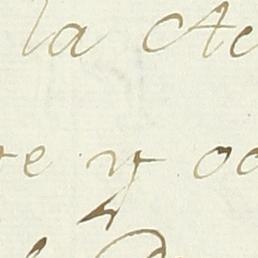 la Ac
re y oc